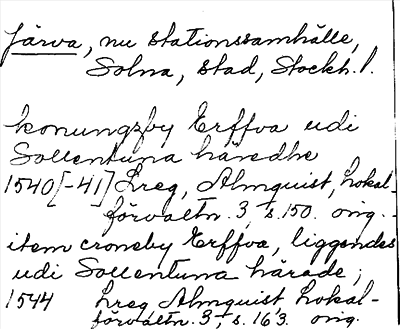 Järva, nu stationssamhälle,
Solna, stad, Stockh. l.
konungzby Erffva udi
Sollentuna häredhe
1540[-41] Lreg, Almquist, Lokal-
förvaltn. 3, s. 150. orig. -
item croneby Erffva, liggendes
udi Sollentuna härade;
1544 Lreg Almquist Lokal-
förvaltn. 3, s. 163. orig.